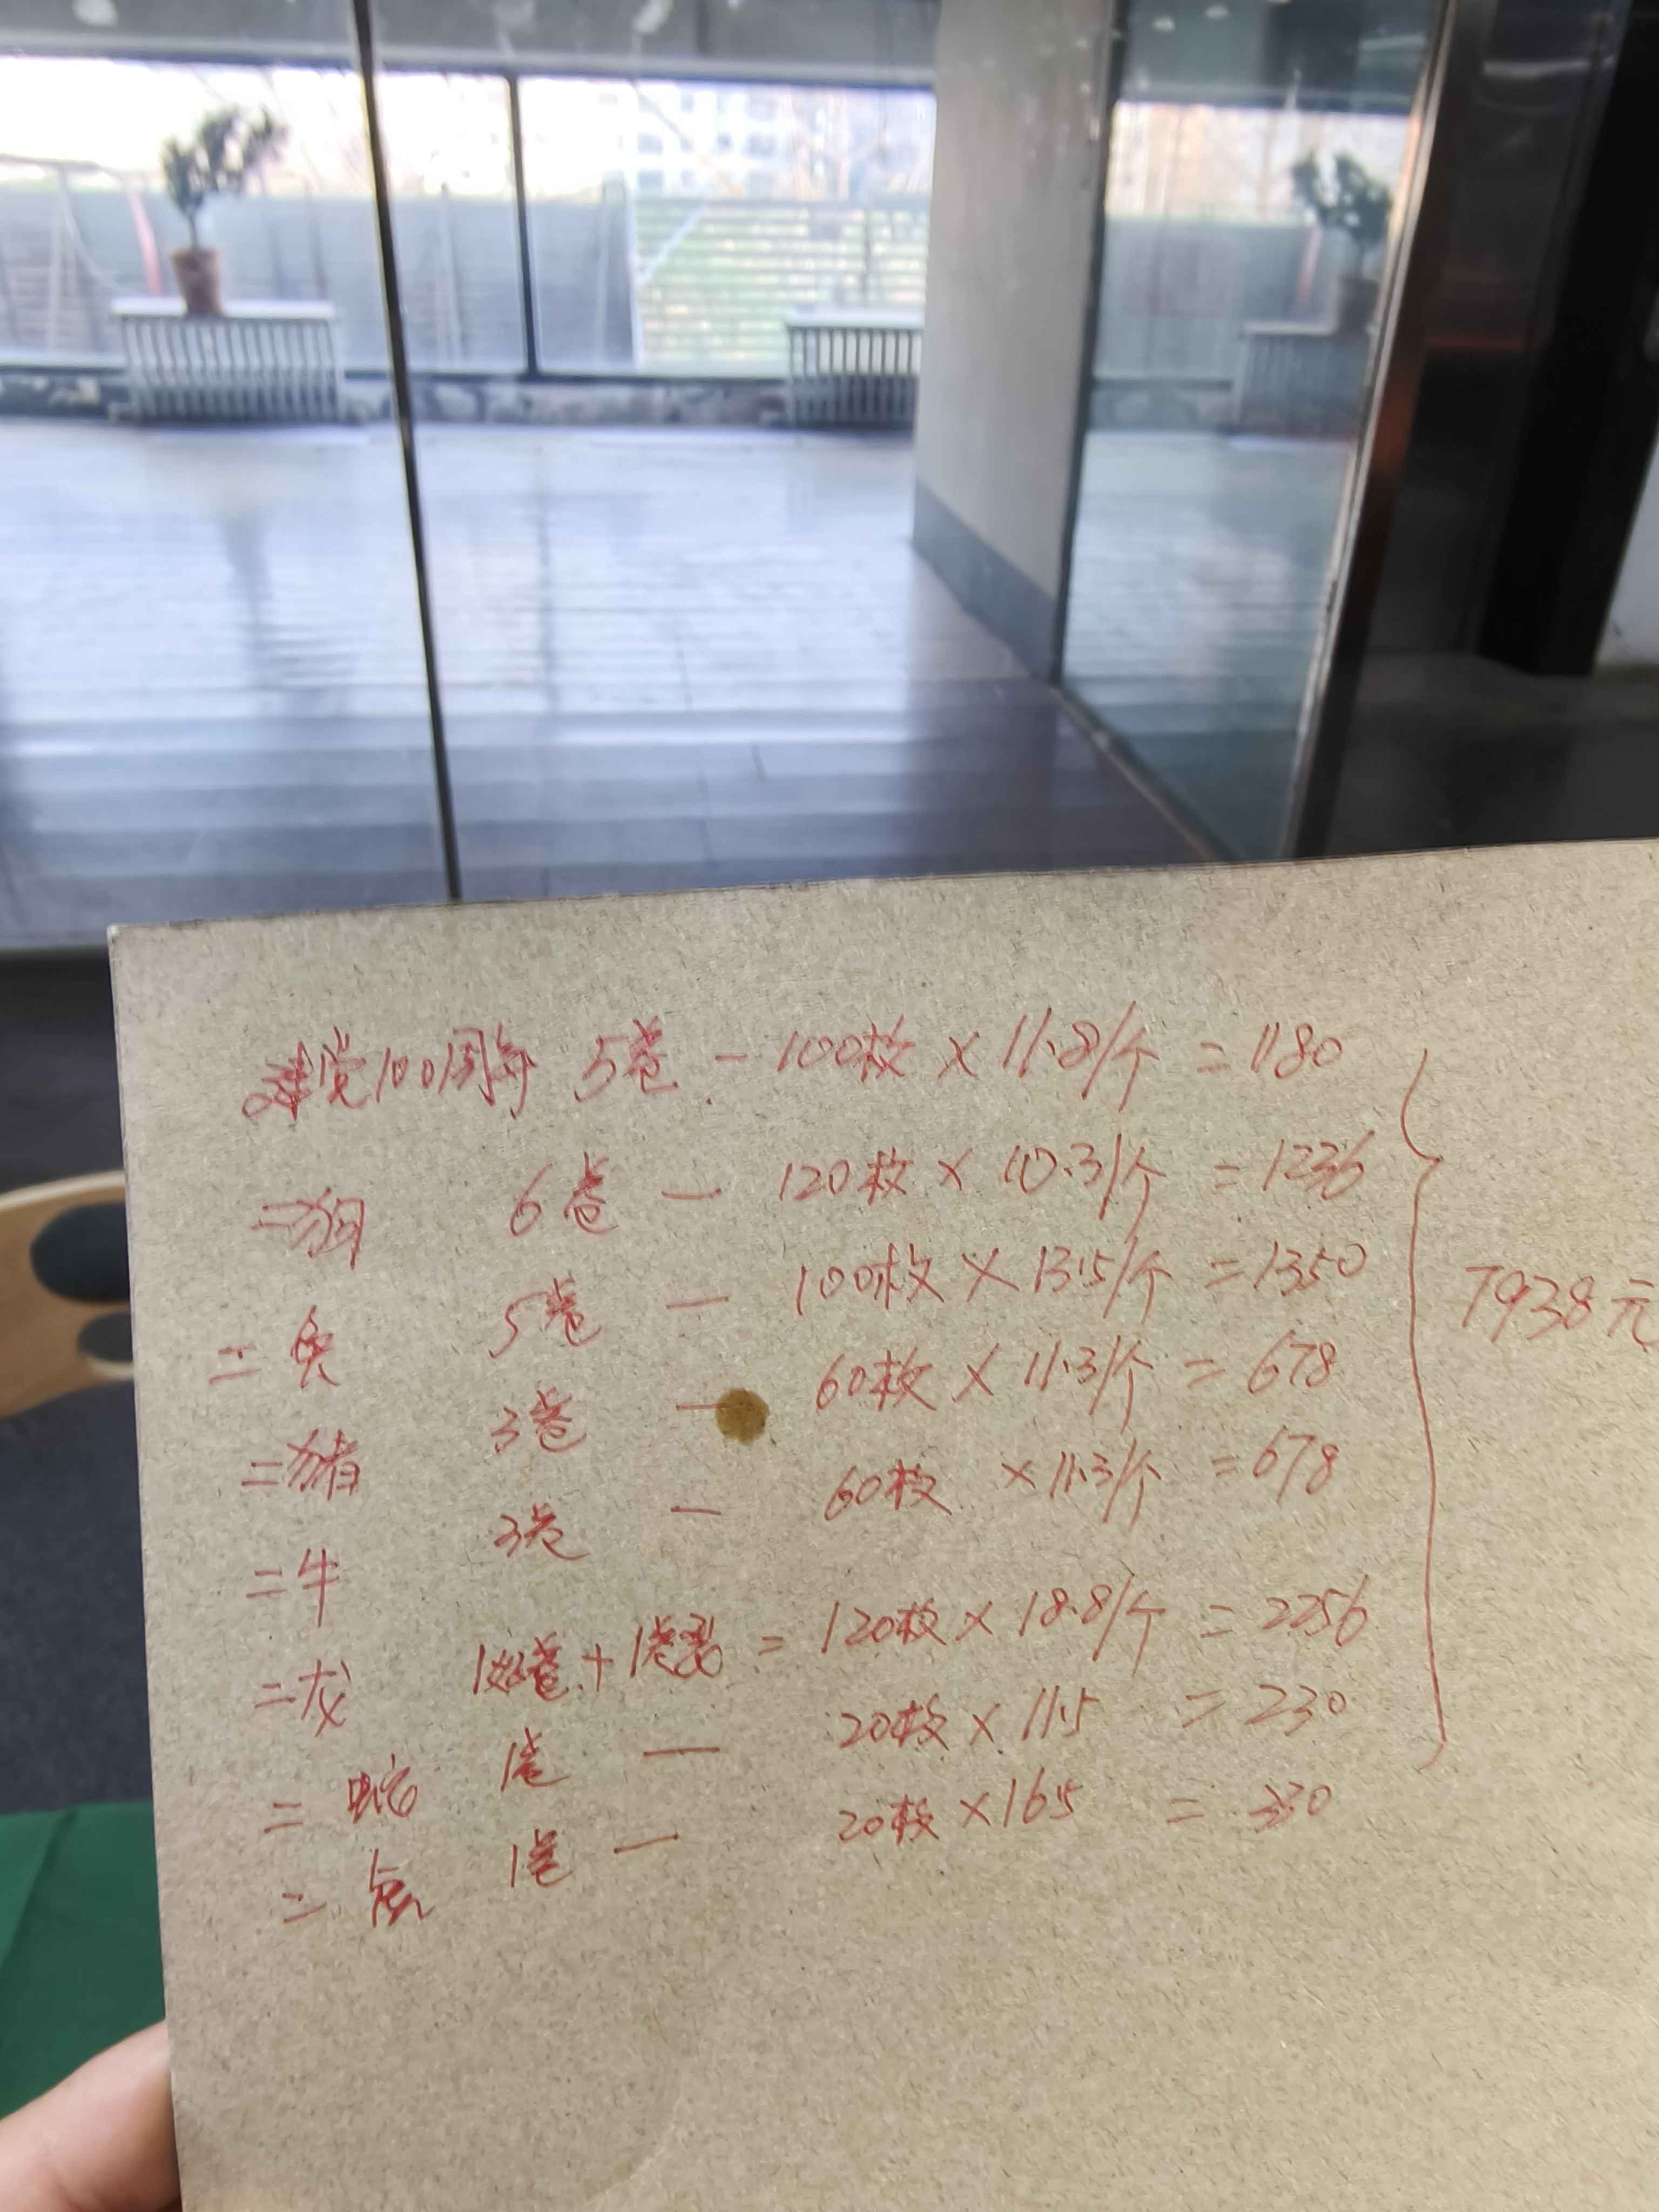 建党100周年 5卷 - 100枚 × 11.8/个 = 1180
二狗 6卷 — 120枚 × 10.3/个 = 1236
二兔 5卷 — 100枚 × 13.5/个 = 1350
二猪 3卷 — 60枚 × 11.3/个 = 678
二牛 3卷 — 60枚 × 11.3/个 = 678
二龙 1卷 = 120枚 × 18.8/个 = 2256
二蛇 1卷 — 20枚 × 11.5 = 230
二 1卷 — 20枚 × 16.5 = 330
7938元